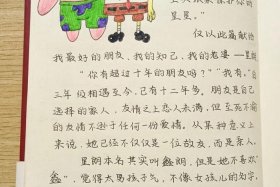 呈星。"
仅以此篇献给
我最好的朋友,我的知己,我的老婆——呈
"你有超过十年的朋友吗?""我有,"自
三年级相遇至今,已有十二年。朋友是自己
选择的家人,友情之上恋人未满,但至死不渝
的友情不逊于任何一份爱情。从某种意义上
来说,她已经不仅仅是一位故友,而是亲人。
呈朗本名其实叫鑫朗,但是她不喜欢
"鑫",觉得太男孩子气,不像女孩儿的名字,